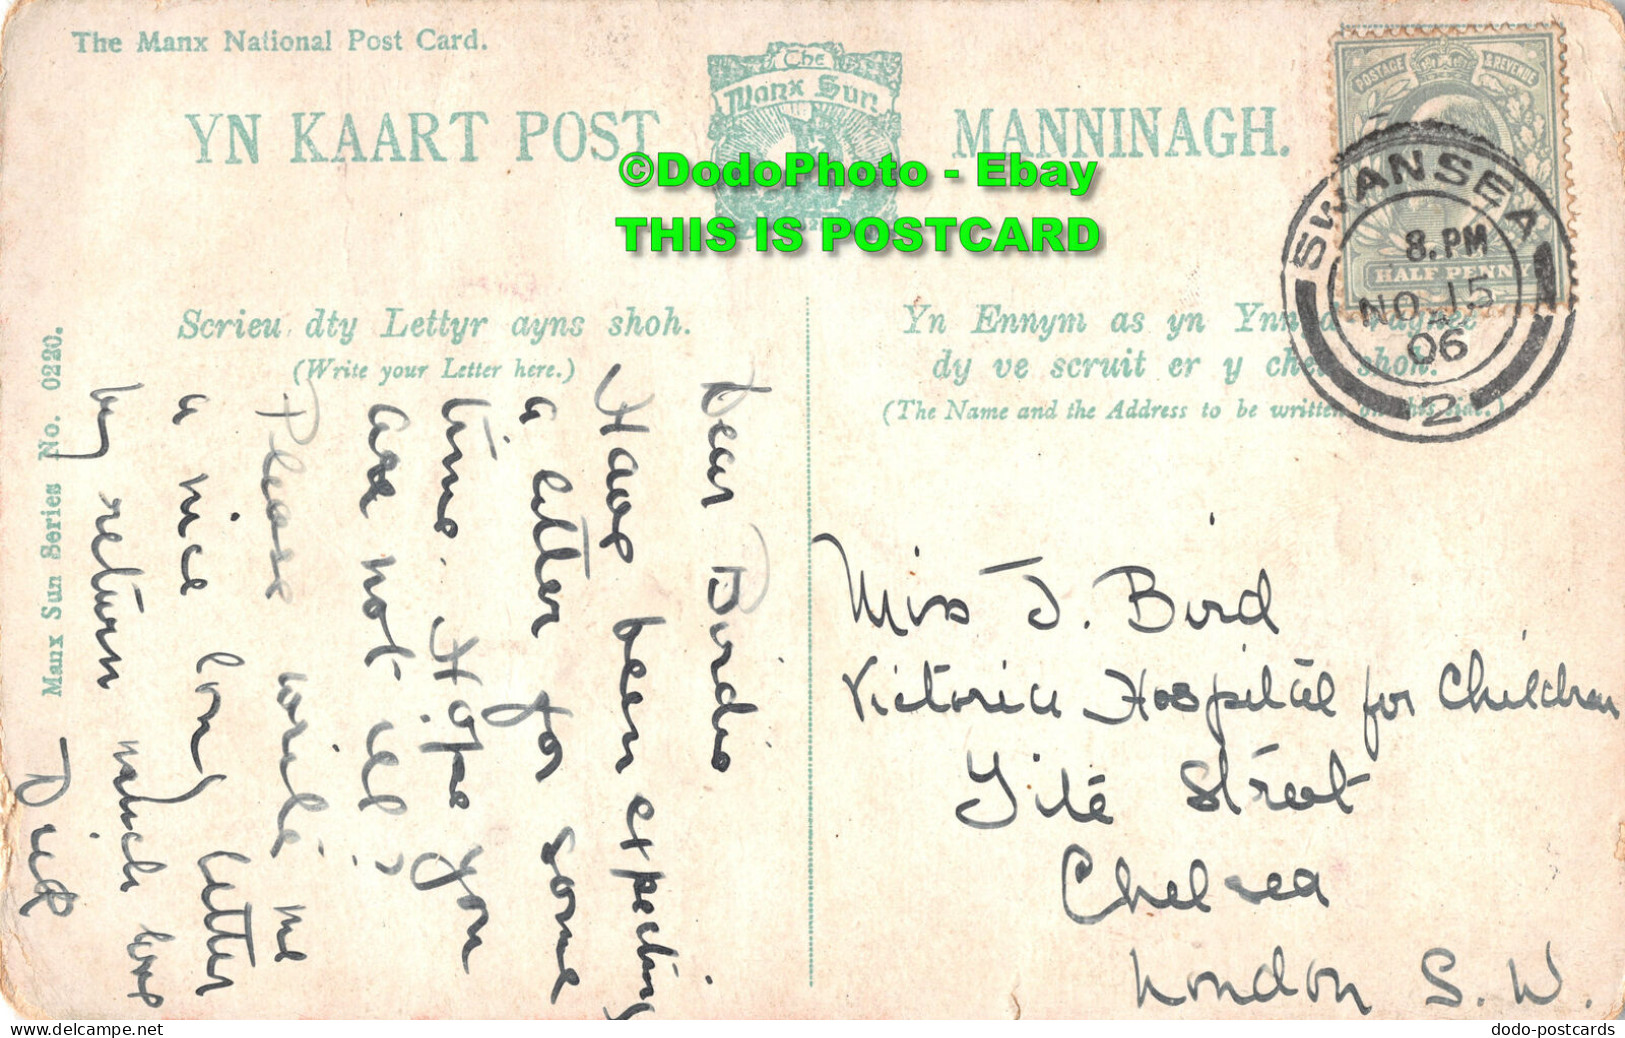 The Manx National Post Card.
The
Manx Sun
YN KAART POST
MANNINAGH.
©DodoPhoto - Ebay
THIS IS POSTCARD
POSTAGE & REVENUE
HALF PENNY
SWANSEA
8. PM
NO 15
06
2
Scrieu dty Lettyr ayns shoh.
(Write your Letter here.)
Yn Ennym as yn
dy ve scruit er y shoh.
(The Name and the Address to be written on this side.)
Manx Sun Series No. 0220.
Dear Birdie
Have been expecting
a letter for some
time. Hope you
are not ill?
Please write me
a nice long letter
by return much love
Dick
Miss J. Bird
Victoria Hospital for Children
Tite Street
Chelsea
London S. W.
dodo-postcards
www.delcampe.net